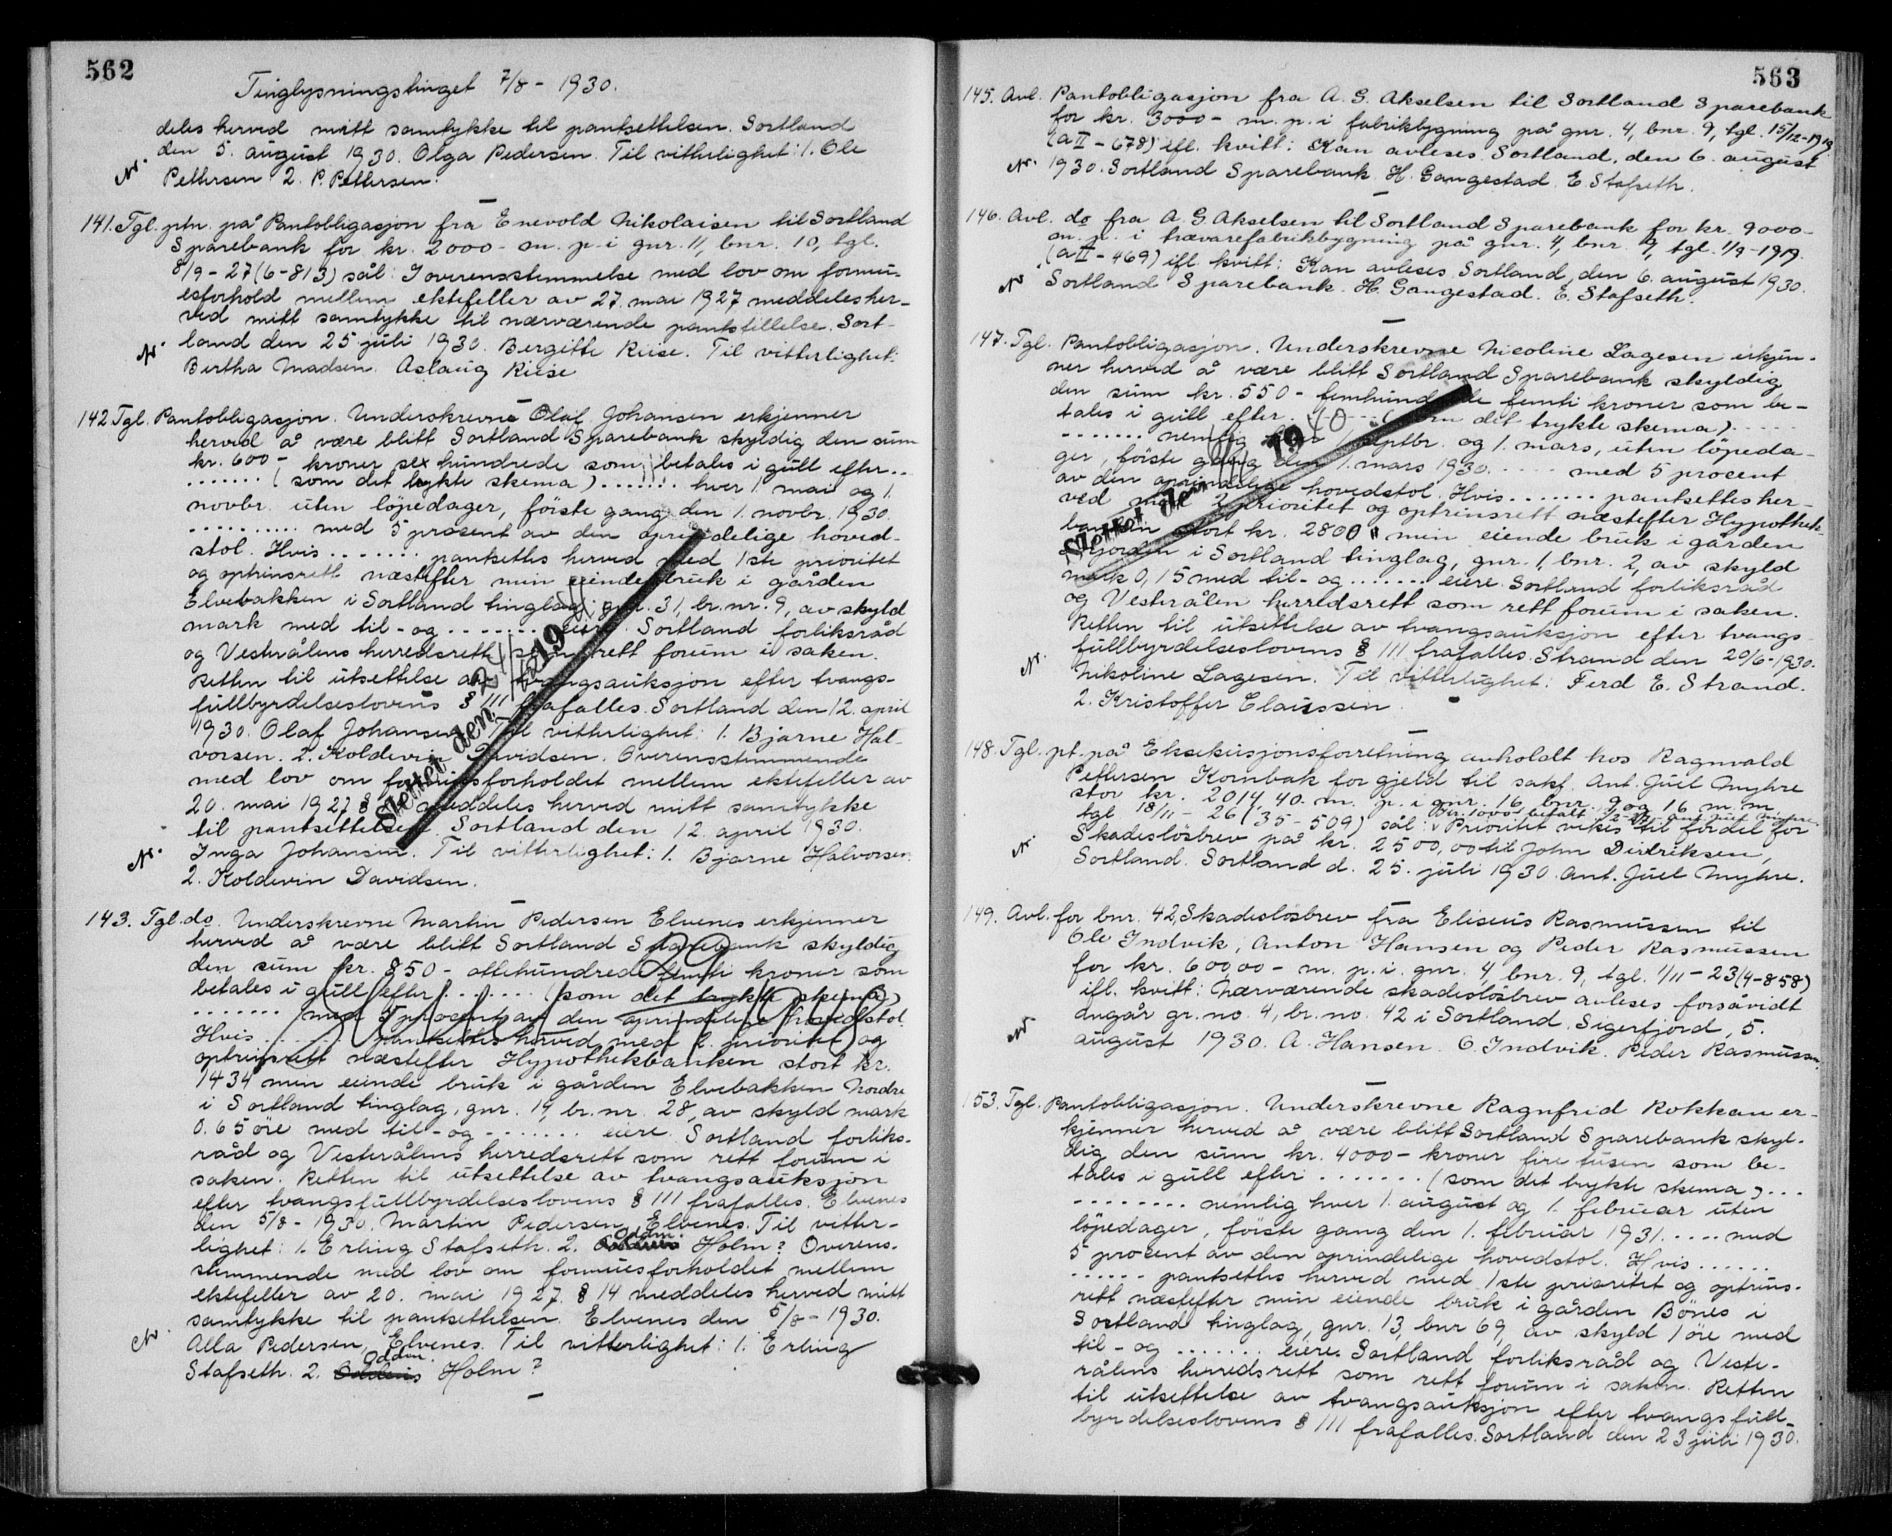 562
Tinglysningstinget 7/8 - 1930.
deles herved mitt samtykke til pantsettelsen. Sortland
den 5. august 1930. Olga Pedersen. Til vitterlighet: 1. Ole
Pettersen 2. P. Pettersen.
141. Tgl. ptn. på Pantobligasjon fra Enevold Nikolaisen til Sortland
Sparebank for kr. 2000 - m. p. i gnr. 11, bnr. 10, tgl.
8/9 - 27 (6-813) sål: I overensstemmelse med lov om formu-
esforhold mellem ektefeller av 27. mai 1927 meddeles her-
ved mitt samtykke til nærværende pantstillelse. Sort-
land den 25 juli 1930. Bergitte Riise. Til vitterlighet:
Bertha Madsen. Aslaug Riise
142 Tgl. Pantobligasjon. Underskrevne Olaf Johansen erkjenner
herved å være blitt Sortland Sparebank skyldig den sum
kr. 600 - kroner sex hundrede som betales i gull efter..
....... (som det trykte skema) ....... hver 1. mai og 1.
novbr. uten löpedager, förste gang den 1. novbr. 1930
.......... med 5 procent av den oprindelige hoved-
stol. Hvis ....... pantsettes herved med 1ste prioritet
og optrinsrett næstefter min eiende bruk i gården
Elvebakken i Sortland tinglag, gnr. 31, br. nr. 9, av skyld
mark med til - og ....... eiere. Sortland forliksråd
og Vesterålens herredsrett som rett forum i saken.
Retten til utsettelse av tvangsauksjon efter tvangs-
fullbyrdelseslovens § 111 frafalles. Sortland den 12. april
1930. Olaf Johansen. Til vitterlighet: 1. Bjarne Hal-
vorsen. 2. Koldevin Davidsen. Overensstemmende
med lov om formuesforholdet mellem ektefeller av
20. mai 1927 § meddeles herved mitt samtykke
til pantsettelsen. Sortland den 12. april 1930.
Inga Johansen. Til vitterlighet: 1. Bjarne Halvorsen.
2. Koldevin Davidsen.
Slettet den 19
143. Tgl. do. Underskrevne Martin Pedersen Elvenes erkjenner
herved å være blitt Sortland Sparebank skyldig
den sum kr. 850 - ottehundrede femti kroner som
betales i gull efter ....... (som det trykte skema)
....... med 5 procent av den oprindelige hovedstol.
Hvis ....... pantsettes herved med 2. prioritet og
optrinsrett næstefter Hypothekbanken stort kr.
1434 min eiende bruk i gården Elvebakken Nordre
i Sortland tinglag, gnr. 14, br. nr. 28, av skyld mark
0.65 öre med til - og ....... eiere. Sortland forliks-
råd og Vesterålens herredsrett som rett forum i
saken. Retten til utsettelse av tvangsauksjon
efter tvangsfullbyrdelseslovens § 111 frafalles. Elvenes
den 5/8 - 1930. Martin Pedersen, Elvenes. Til vitter-
lighet: 1. Erling Stafseth. 2. Oddm. Holm? Overens-
stemmende med lov om formuesforholdet mellem
ektefeller av 20. mai 1927 § 14 meddeles herved mitt
samtykke til pantsettelsen. Elvenes den 5/8 - 1930.
Alla Pedersen, Elvenes. Til vitterlighet: 1. Erling
Stafseth. 2. Oddm. Holm?
563
145. Avl. Pantobligasjon fra A. G. Akselsen til Sortland Sparebank
for kr. 3000 - m. p. i fabrikbygning på gnr. 4, bnr. 9, tgl. 15/12-1919
(a II - 678) ifl. kvitt: Kan avleses. Sortland, den 6. august
1930. Sortland Sparebank. H. Gangestad. E. Stafseth.
146. Avl. do fra A. G. Akselsen til Sortland Sparebank for kr. 9000 -
m. p. i trævarefabrikbygning på gnr. 4, bnr. 9, tgl. 1/9 - 1919.
(a II - 469) ifl. kvitt: Kan avleses. Sortland, den 6. august 1930.
Sortland Sparebank. H. Gangestad. E. Stafseth.
147. Tgl. Pantobligasjon. Underskrevne Nicoline Lagesen erkjen-
ner herved å være blitt Sortland Sparebank skyldig
den sum kr. 550 - femhundrede femti kroner som be-
tales i gull efter. (som det trykte skema).
....... nemlig hver 1. septbr. og 1. mars, uten löpeda-
ger, förste gang den 1. mars 1930. ..... med 5 procent
av den oprindelige hovedstol. Hvis ....... pantsettes her-
ved med 2 prioritet og optrinsrett næstefter Hypothek-
banken stort kr. 2800 " min eiende bruk i gården
i Sortland tinglag, gnr. 1, bnr. 2, av skyld
mark 0,15 med til - og ....... eiere. Sortland forliksråd
og Vesterålen herredsrett som rett forum i saken.
Retten til utsettelse av tvangsauksjon efter tvangs-
fullbyrdelseslovens § 111 frafalles. Strand den 20/6 - 1930.
Nikoline Lagesen. Til vitterlighet: Ferd E. Strand.
2. Kristoffer Claussen.
Slettet den 19 40
148. Tgl. pt. på Eksekusjonsforretning avholdt hos Ragnvald
Pettersen Kornbak for gjeld til sakf. Ant. Juel Myhre
stor kr. 2014,40. m. p. i gnr. 16, bnr. 9 og 16 m. m.
tgl 18/11 - 26 (35 - 509) sål: Prioritet vikes til fordel for
Skadeslösbrev på kr. 2500,00 til John Didriksen,
Sortland. Sortland d. 25. juli 1930. Ant. Juel Myhre.
149. Avl. for bnr. 42, Skadeslösbrev fra Eliseus Rasmussen til
Ole Indvik, Anton Hansen og Peder Rasmussen
for kr. 60000 - m. p. i gnr. 4 bnr. 9, tgl. 1/11 - 23 (4-858)
ifl. kvitt: Nærværende skadeslösbrev avleses forsåvidt
angår gr. no. 4, br. no. 42 i Sortland. Sigerfjord, 5.
august 1930. A. Hansen. O. Indvik. Peder Rasmussen.
153. Tgl. Pantobligasjon. Underskrevne Ragnfrid Rokkan er-
kjenner herved å være blitt Sortland Sparebank skyl-
dig den sum kr. 4000 - kroner fire tusen som be-
tales i gull efter ....... (som det trykte skema) ...
........ nemlig hver 1. august og 1. februar uten
löpedager, förste gang den 1. februar 1931. ..... med
5 procent av den oprindelige hovedstol. Hvis ......
...... pantsettes herved med 1ste prioritet og optrins-
rett næstefter min eiende bruk i gården Bönes i
Sortland tinglag, gnr. 13, bnr 69, av skyld 1 öre med
til - og ....... eiere. Sortland forliksråd og Veste-
rålens herredsrett som rett forum i saken. Retten
til utsettelse av tvangsauksjon efter tvangsfull-
byrdelseslovens § 111 frafalles. Sortland den 23 juli 1930.